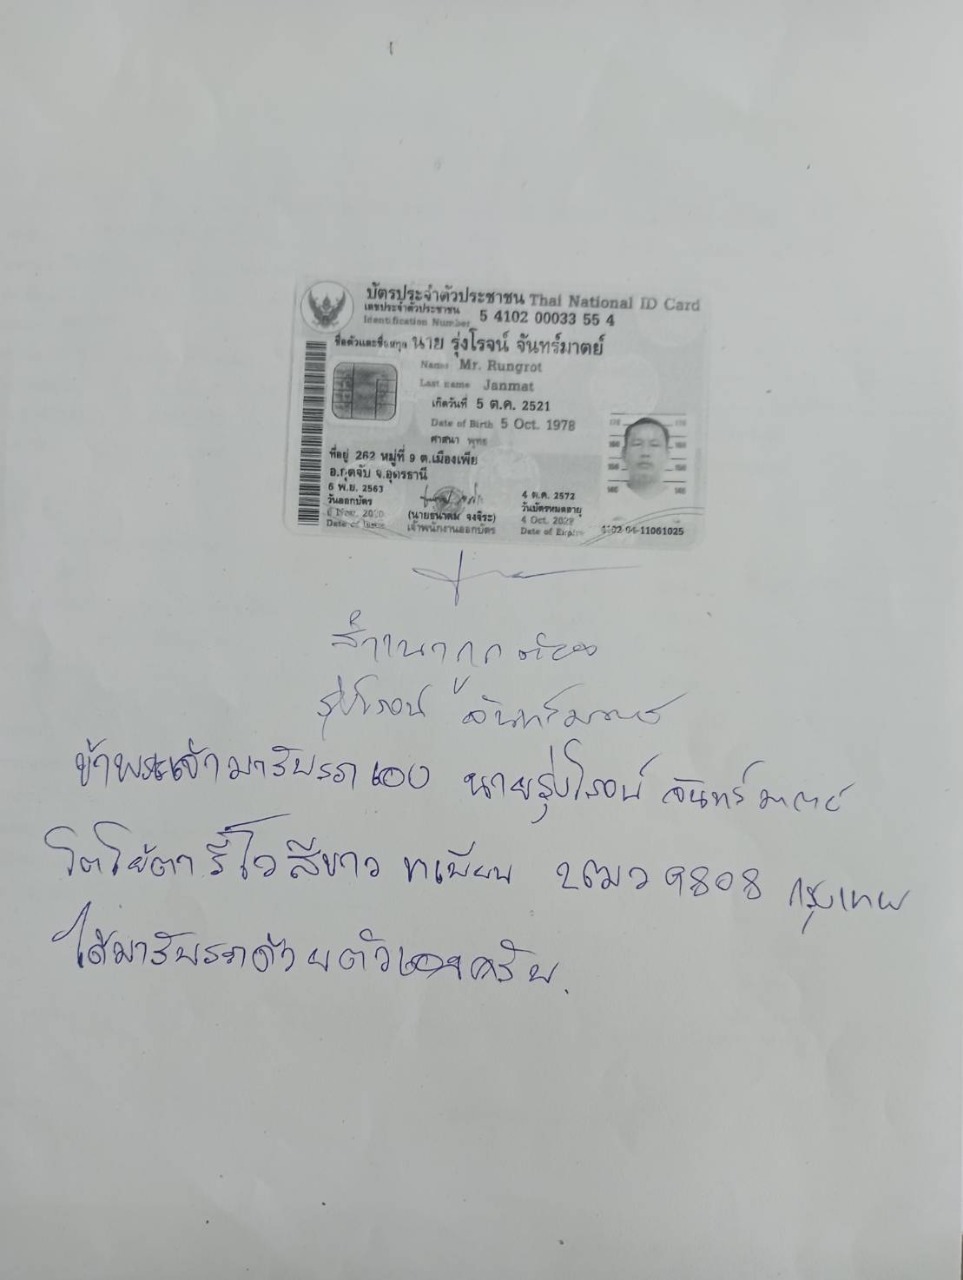 บัตรประจำตัวประชาชน Thai National ID Card
เลขประจำตัวประชาชน
Identification Number 5 4102 00033 55 4
ชื่อตัวและชื่อสกุล นาย รุ่งโรจน์ จันทร์มาตย์
Name Mr. Rungrot
Last name Janmat
เกิดวันที่ 5 ต.ค. 2521
Date of Birth 5 Oct. 1978
ศาสนา พุทธ
ที่อยู่ 262 หมู่ที่ 9 ต.เมืองเพีย
อ.กุดจับ จ.อุดรธานี
6 พ.ย. 2563
วันออกบัตร
6 Nov. 2020
Date of Issue
(นายธนาคม จงจิระ)
เจ้าพนักงานออกบัตร
4 ต.ค. 2572
วันบัตรหมดอายุ
4 Oct. 2029
Date of Expiry
-11061025
สำเนาถูกต้อง
รุ่งโรจน์ จันทร์มาตย์
ข้าพระเจ้ามารับรถเอง นายรุ่งโรจน์ จันทร์มาตย์
โตโย้ตา รีโว สีขาว ทเบียน 9808 กรุงเทพ
ได้มารับรถด้วยตัวเองครับ.